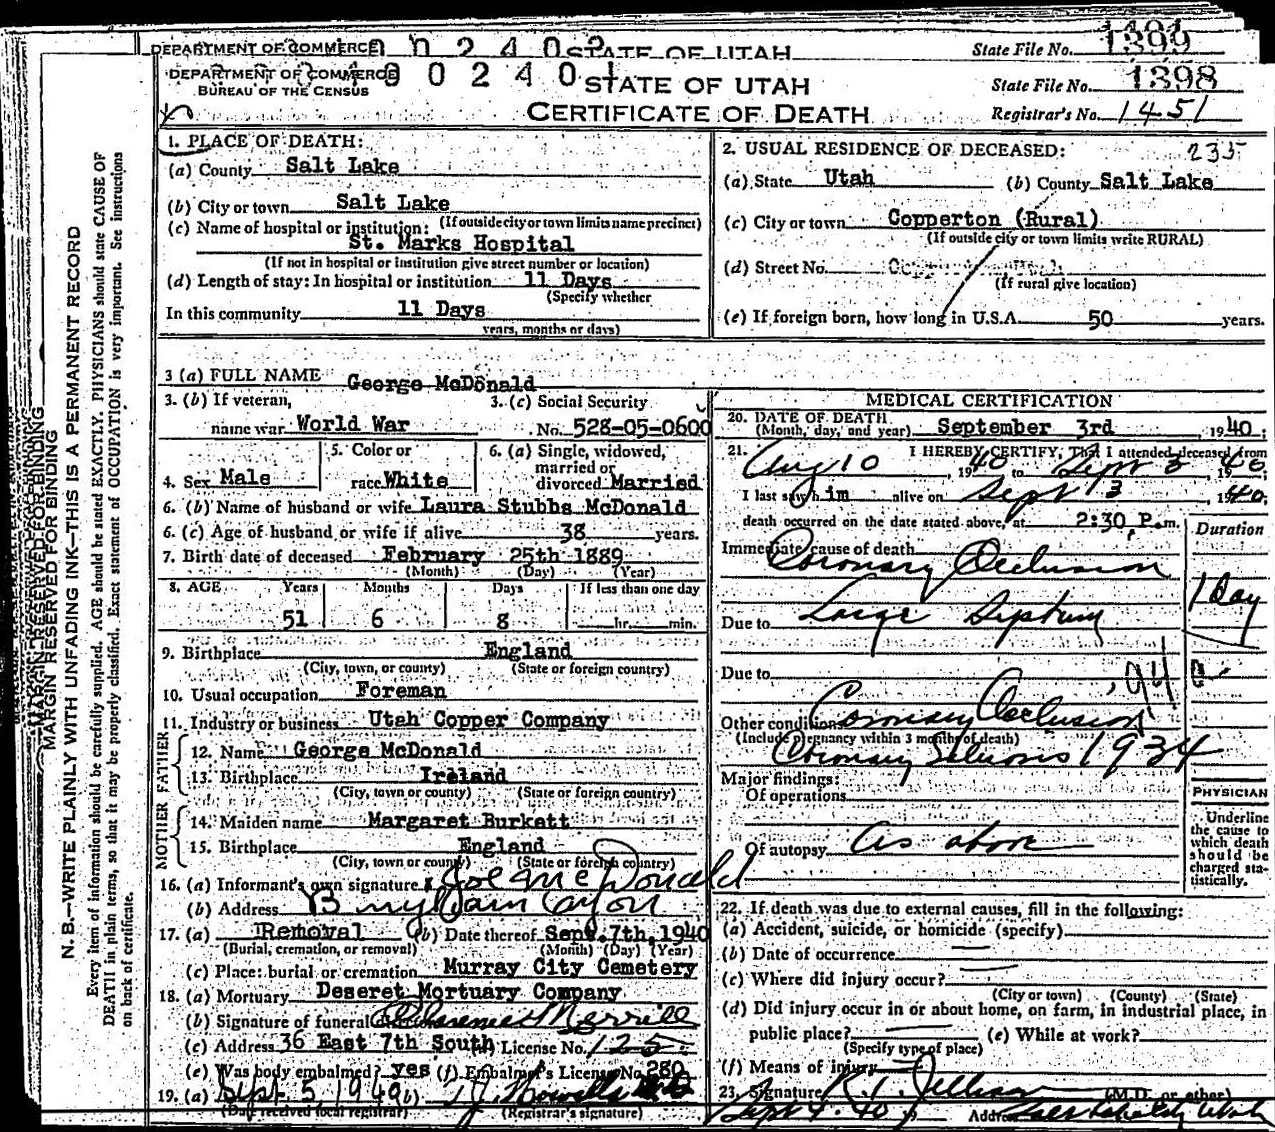 DEPARTMENT OF COMMERCE STATE OF UTAH State File No. 1399
DEPARTMENT OF COMMERCE 0 0 2 4 0 1 STATE OF UTAH State File No. 1398
BUREAU OF THE CENSUS
CERTIFICATE OF DEATH Registrar's No. 1451
1. PLACE OF DEATH:
(a) County Salt Lake
(b) City or town Salt Lake
(If outside city or town limits name precinct)
(c) Name of hospital or institution:
St. Marks Hospital
(If not in hospital or institution give street number or location)
(d) Length of stay: In hospital or institution 11 Days
(Specify whether
In this community 11 Days
years, months or days)
2. USUAL RESIDENCE OF DECEASED: 235
(a) State Utah (b) County Salt Lake
(c) City or town Copperton (Rural)
(If outside city or town limits write RURAL)
(d) Street No.
(If rural give location)
(e) If foreign born, how long in U.S.A. 50 years.
3 (a) FULL NAME George McDonald
3. (b) If veteran, 3. (c) Social Security
name war World War No. 528-05-0600
5. Color or 6. (a) Single, widowed,
married or
4. Sex Male race White divorced Married
6. (b) Name of husband or wife Laura Stubbs McDonald
6. (c) Age of husband or wife if alive 38 years.
7. Birth date of deceased February 25th 1889
(Month) (Day) (Year)
8. AGE Years Months Days If less than one day
51 6 8 hr. min.
9. Birthplace England
(City, town, or county) (State or foreign country)
10. Usual occupation Foreman
11. Industry or business Utah Copper Company
FATHER
12. Name George McDonald
13. Birthplace Ireland
(City, town or county) (State or foreign country)
MOTHER
14. Maiden name Margaret Burkett
15. Birthplace England
(City, town or county) (State or foreign country)
16. (a) Informant's own signature Joe McDonald
(b) Address Bingham Canyon
17. (a) Removal (b) Date thereof Sept. 7th, 1940
(Burial, cremation, or removal) (Month) (Day) (Year)
(c) Place: burial or cremation Murray City Cemetery
18. (a) Mortuary Deseret Mortuary Company
(b) Signature of funeral Merrill
(c) Address 36 East 7th South License No. 125
(e) Was body embalmed? yes (f) Embalmer's License No. 280
19. (a) Sept 5, 1940 (b)
(Date received local registrar) (Registrar's signature)
MEDICAL CERTIFICATION
20. DATE OF DEATH
(Month, day, and year) September 3rd 1940;
21. I HEREBY CERTIFY, That I attended deceased from
Aug 10 1940 to Sept 3 1940;
I last saw him alive on Sept 3 1940;
death occurred on the date stated above, at 2:30 P.m.
Duration
Immediate cause of death
Coronary Occlusion
1 Day
Due to Large Septum
Due to
94
Coronary Occlusion
Other conditions
(Include pregnancy within 3 months of death)
Coronary 1934
Major findings:
Of operations
Of autopsy As above
PHYSICIAN
Underline
the cause to
which death
should be
charged sta-
tistically.
22. If death was due to external causes, fill in the following:
(a) Accident, suicide, or homicide (specify)
(b) Date of occurrence
(c) Where did injury occur?
(City or town) (County) (State)
(d) Did injury occur in or about home, on farm, in industrial place, in
public place? (e) While at work?
(Specify type of place)
(f) Means of injury
23. Signature (M.D. or other)
Sept 4. 40 Address Salt Lake City Utah
MARGIN RESERVED FOR BINDING
MARGIN RESERVED FOR BINDING
N. B.—WRITE PLAINLY WITH UNFADING INK—THIS IS A PERMANENT RECORD
Every item of information should be carefully supplied. AGE should be stated EXACTLY. PHYSICIANS should state CAUSE OF
DEATH in plain terms, so that it may be properly classified. Exact statement of OCCUPATION is very important. See instructions
on back of certificate.